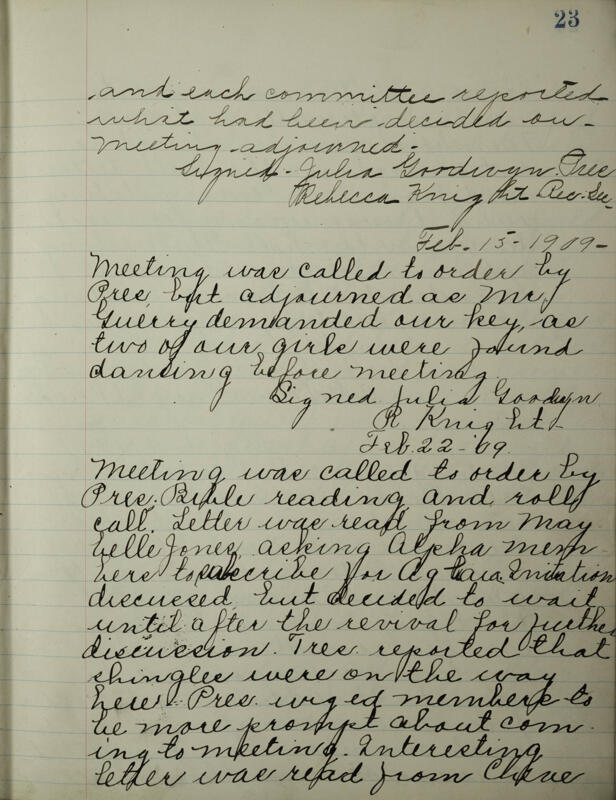 23
and each committee reported
what had been decided on-
Meeting adjourned-
Signed- Julia Goodwyn. Pres
Rebecca Knight Rec. Sec-
Feb. 15-1909-
Meeting was called to order by
Pres, but adjourned as Mr.
Guerry demanded our key, as
two of our girls were found
dancing before meeting.
Signed Julia Goodwyn
R Knight-
Feb. 22-09.
Meeting was called to order by
Pres. Bible reading and roll
call. Letter was read from May
belle Jones, asking Alpha mem
bers to subscribe for Aglaia. Initiation
discussed but decided to wait
until after the revival for further
discussion. Tres. reported that
shingles were on the way
here. Pres. urged members to
be more prompt about com
ing to meeting. Interesting
letter was read from